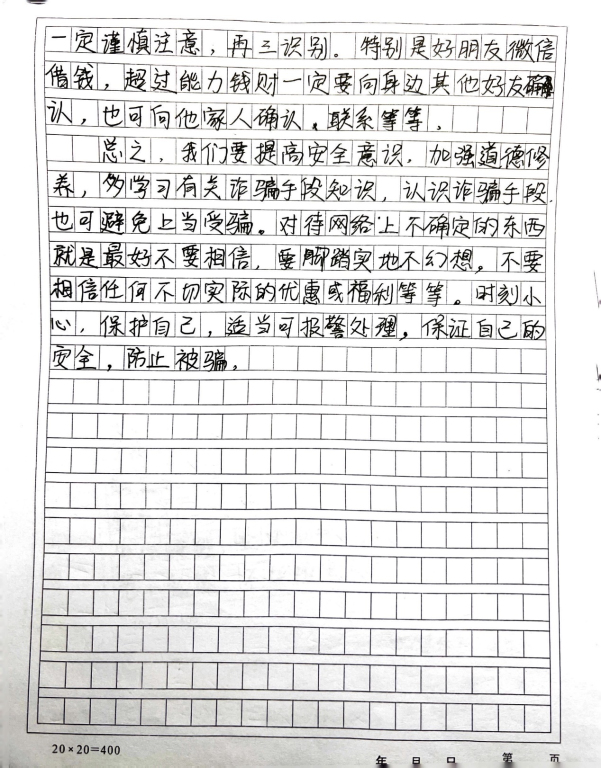 一定谨慎注意，再三识别。特别是好朋友微信
借钱，超过能力钱财一定要向身边其他好友确
认，也可向他家人确认。联系等等，
总之，我们要提高安全意识，加强道德修
养，多学习有关诈骗手段知识，认识诈骗手段，
也可避免上当受骗。对待网络上不确定的东西
就是最好不要相信，要脚踏实地不幻想。不要
相信任何不切实际的优惠或福利等等。时刻小
心，保护自己，适当可报警处理，保证自己的
安全，防止被骗，
20×20=400
年 日 第 页